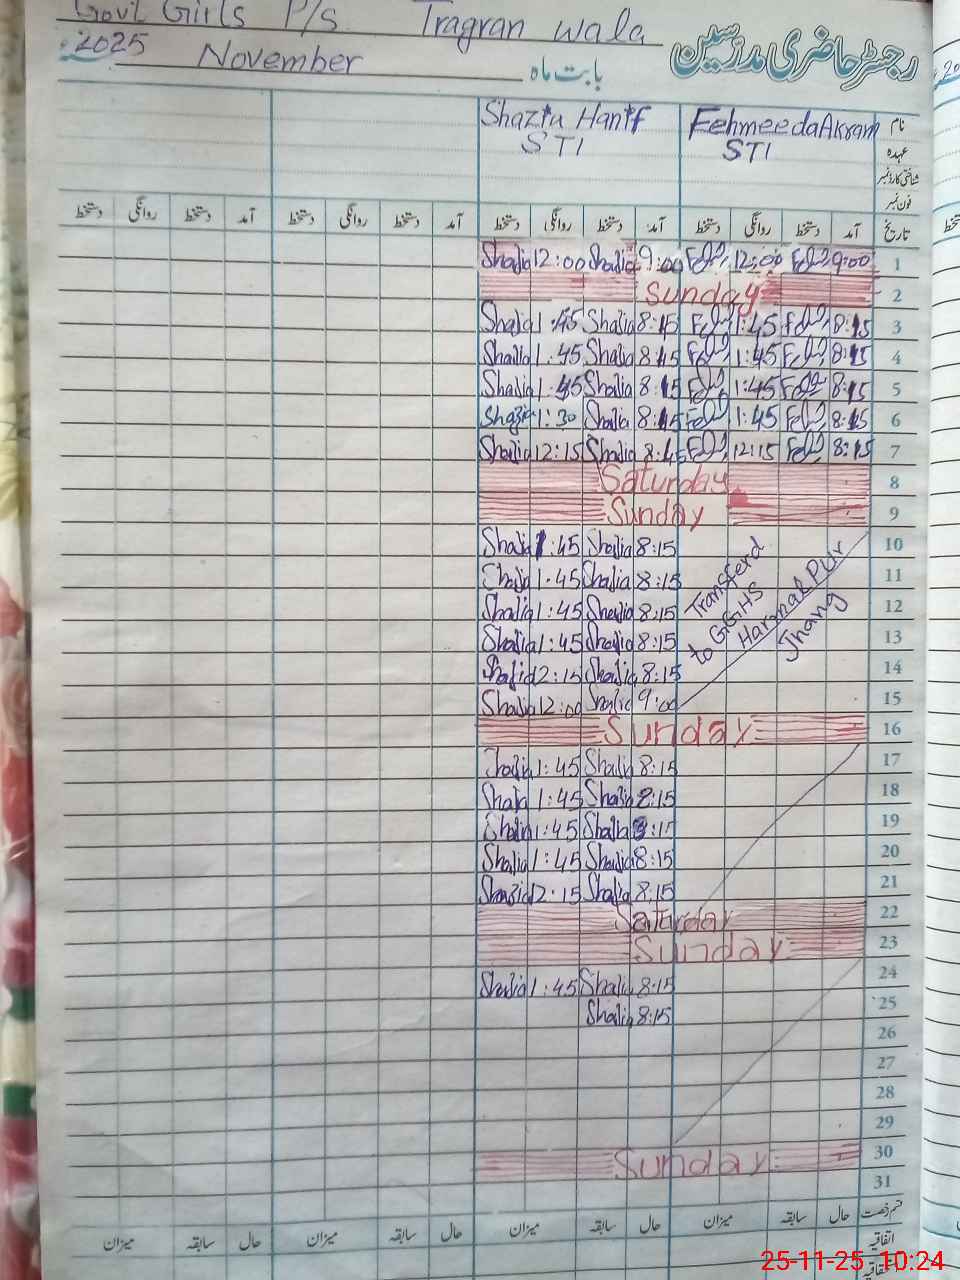 Govt Girls P/s Tragran wala
رجسٹر حاضری مدرسین
2025 November بابت ماہ
Shazia Hanif FehmeedaAkram نام
STI STI عہدہ
شناختی کارڈ نمبر
فون نمبر
تاریخ آمد دستخط روانگی دستخط آمد دستخط روانگی دستخط آمد دستخط روانگی دستخط آمد دستخط روانگی دستخط
Shazia 12:00 Shazia 9:00 12:00 9:00 1
Sunday 2
Shazia 1:45 Shazia 8:15 1:45 8:15 3
Shazia 1:45 Shazia 8:15 1:45 8:15 4
Shazia 1:45 Shazia 8:15 1:45 8:15 5
Shazia 1:30 Shazia 8:15 1:45 8:15 6
Shazia 12:15 Shazia 8:15 12:15 8:15 7
Saturday 8
Sunday 9
Shazia 1:45 Shazia 8:15 10
Shazia 1:45 Shazia 8:15 11
Shazia 1:45 Shazia 8:15 12
Shazia 1:45 Shazia 8:15 13
Shazia 12:15 Shazia 8:15 14
Shazia 12:00 Shazia 9:00 15
Transferd
to GGHS
Harmal PUr
Jhang
Sunday 16
Shazia 1:45 Shazia 8:15 17
Shazia 1:45 Shazia 8:15 18
Shazia 1:45 Shazia 8:15 19
Shazia 1:45 Shazia 8:15 20
Shazia 12:15 Shazia 8:15 21
Saturday 22
Sunday 23
Shazia 1:45 Shazia 8:15 24
Shazia 8:15 25
26
27
28
29
Sunday 30
31
قسم رخصت حال سابقہ میزان حال سابقہ میزان حال سابقہ میزان حال سابقہ میزان
اتفاقیہ
25-11-25 10:24